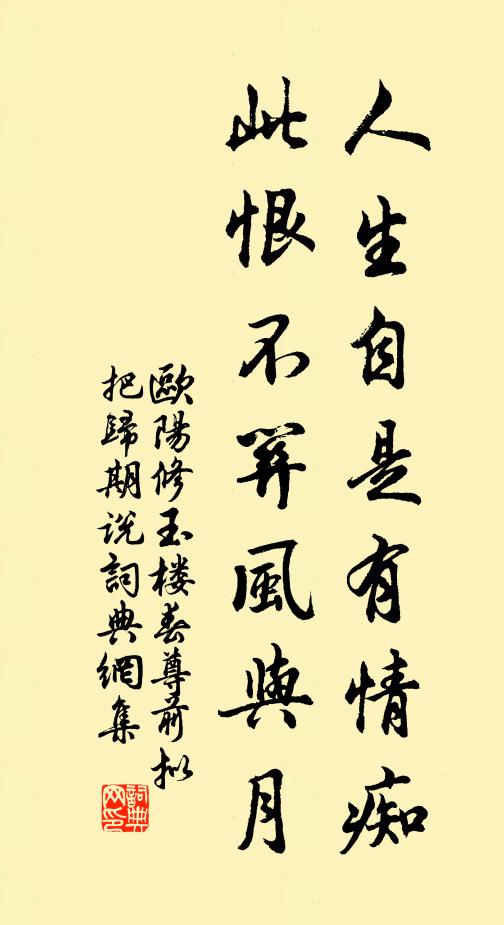 人生自是有情痴
此恨不關風與月
歐陽修玉楼春尊前拟
把歸期説詞典網集
詞典
网印